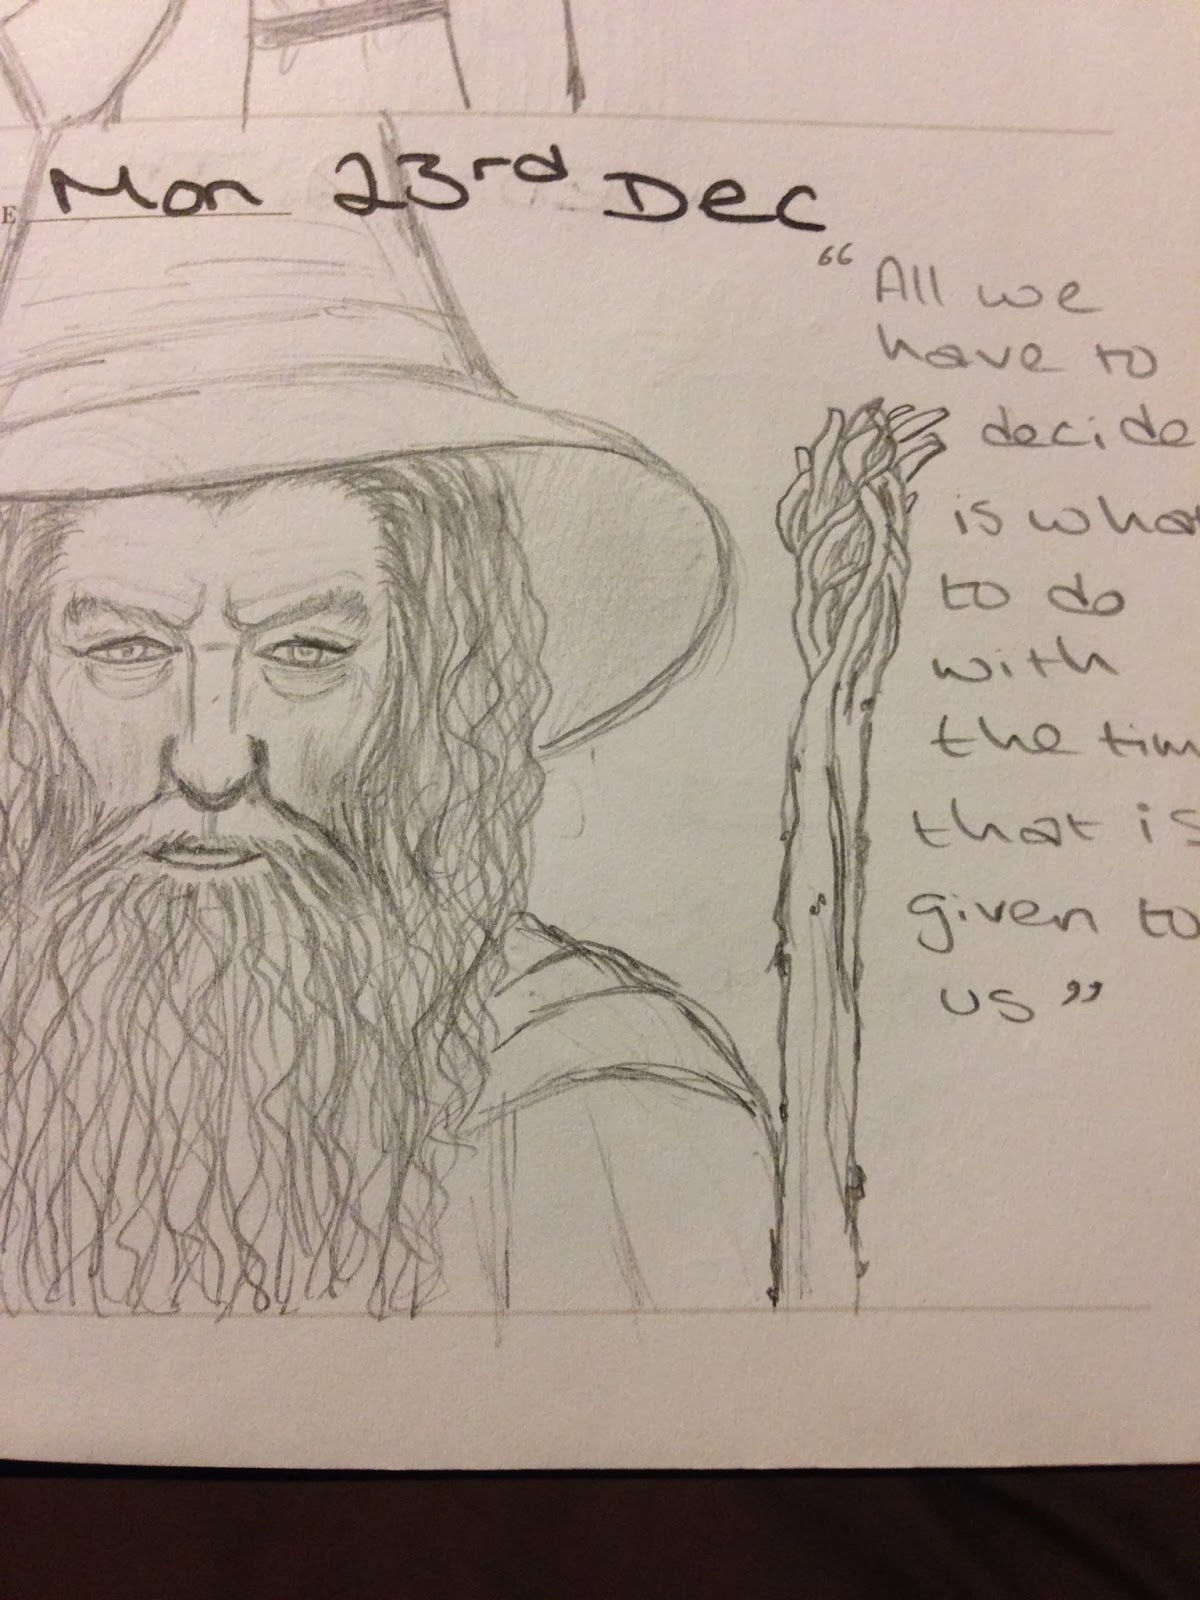 E Mon 23rd Dec
"All we
have to
decide
is wha
to do
with
the tim
that is
given to
us"